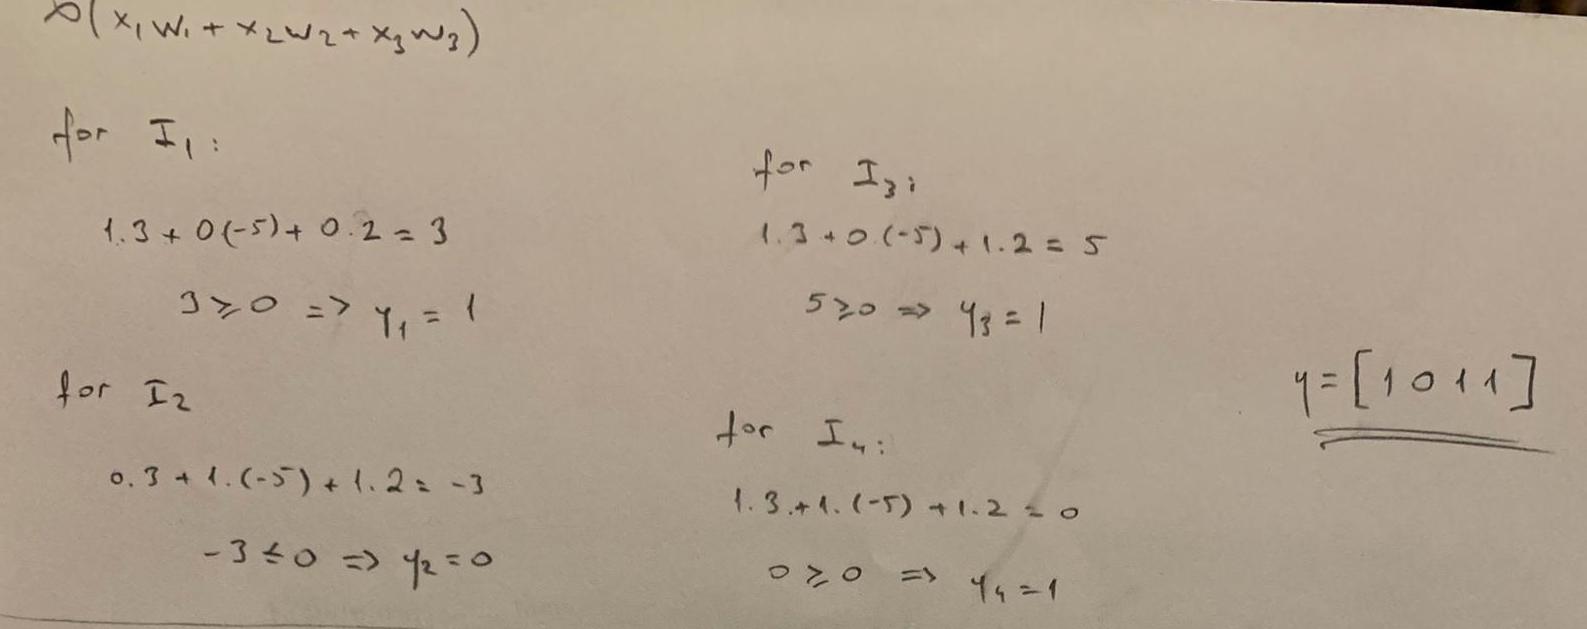 (x₁w₁ + x₂w₂ + x₃w₃)
for I₁:
1.3 + 0(-5) + 0.2 = 3
3 ≥ 0 => y₁ = 1
for I₂
0.3 + 1.(-5) + 1.2 = -3
-3 ≤ 0 => y₂ = 0
for I₃:
1.3 + 0.(-5) + 1.2 = 5
5 ≥ 0 => y₃ = 1
for I₄:
1.3 + 1.(-5) + 1.2 = 0
0 ≥ 0 => y₄ = 1
y = [1 0 1 1]